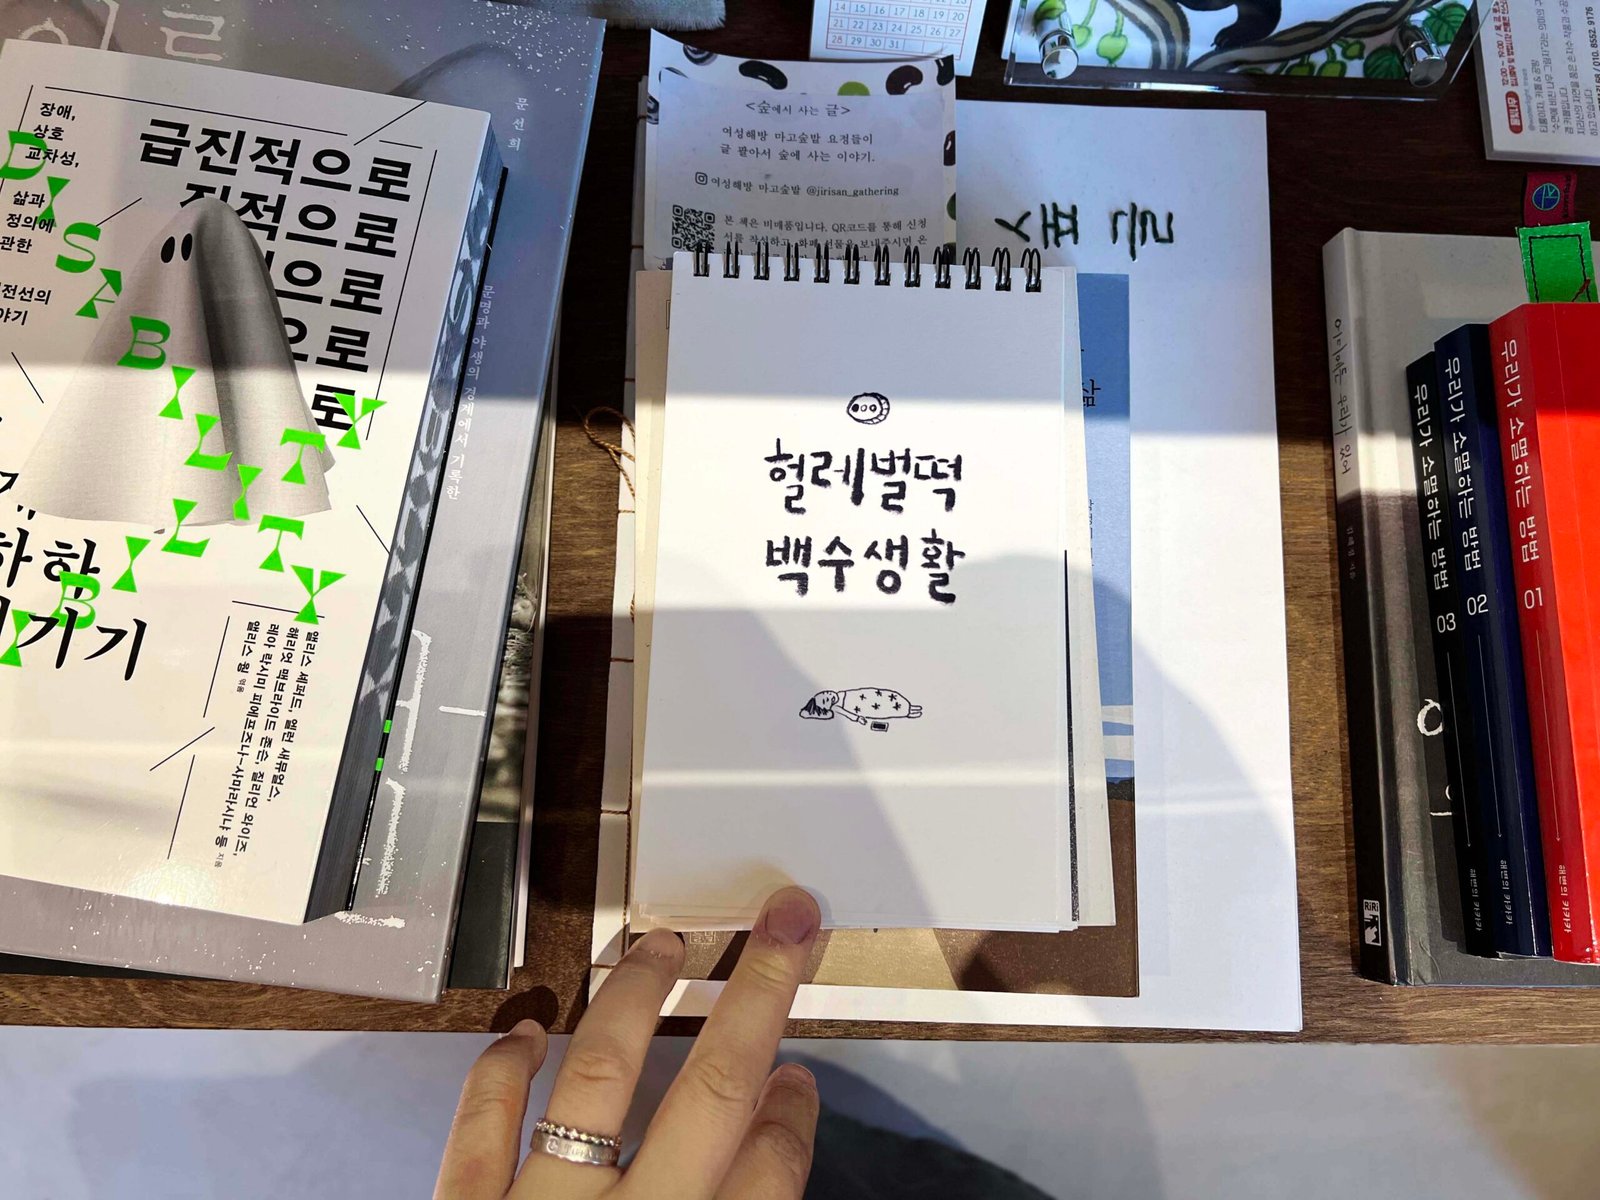 이르
문선희
문명과 야생의 경계에서 기록한
장애,
상호
교차성,
삶과
정의에
관한
전선의
야기
급진적으로
적으로
으로
으로
로
DISABILITY
기기
앨리스 셰퍼드, 앨런 새뮤얼스,
해리엇 맥브라이드 존슨, 질리언 와이즈,
레아 락시미 피에프즈나-사마라시냐 등 지음
앨리스 웡 엮음
14 15 16 17 18 19 20
21 22 23 24 25 26 27
28 29 30 31
<숲에서 사는 글>
여성해방 마고숲밭 요정들이
글 팔아서 숲에 사는 이야기.
여성해방 마고숲밭 @jirisan_gathering
본 책은 비매품입니다. QR코드를 통해 신청
서를 작성하고, 화폐 선물을 보내주시면 온
헐레벌떡
백수생활
삶
010. 8552. 9176
어디에든 우리가 있어
김혜정 지음
RiRi
우리가 소멸하는 방법 03
해변의 카카카
우리가 소멸하는 방법 02
해변의 카카카
우리가 소멸하는 방법 01
해변의 카카카